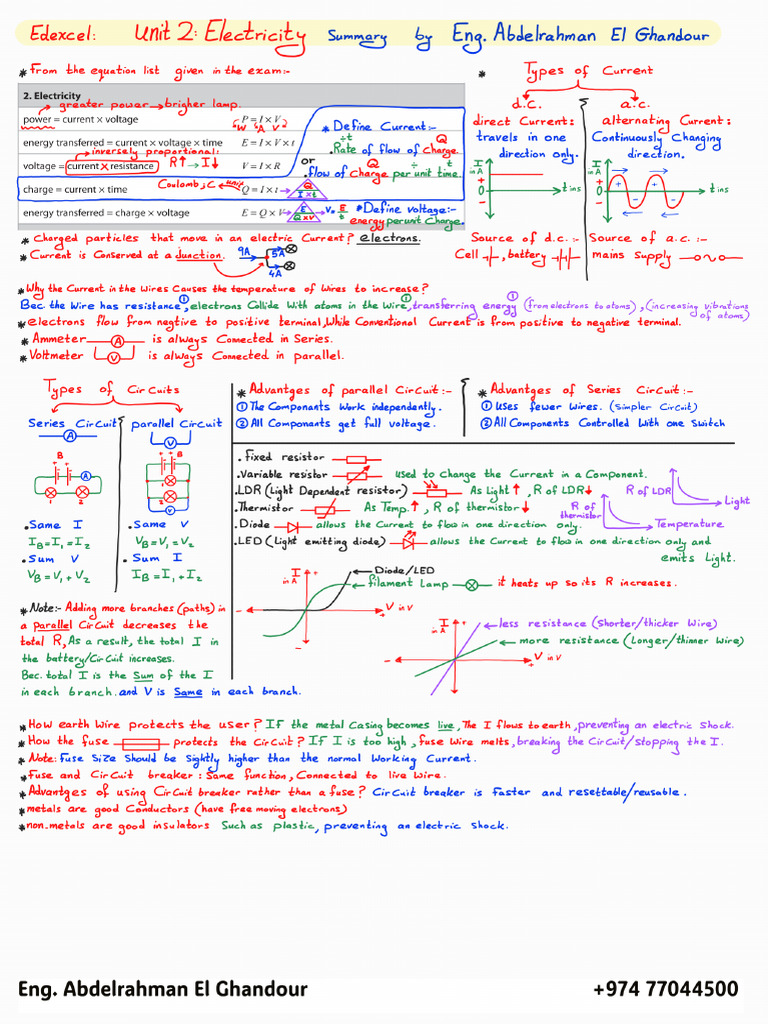 Edexcel: Unit 2: Electricity Summary by Eng. Abdelrahman El Ghandour
* From the equation list given in the exam:-
2. Electricity
greater power → brigher lamp.
power = current × voltage P = I × V
W A V
energy transferred = current × voltage × time E = I × V × t
inversely proportional:
voltage = current × resistance R↑ → I↓ V = I × R
charge = current × time Coulomb, C unit Q = I × t
Q
I × t
energy transferred = charge × voltage E = Q × V
E
Q × V
V = E/t
* Define Current:-
÷t Q
. Rate of flow of charge.
or Q ÷ t
. flow of charge per unit time.
* Define voltage:-
energy per unit Charge.
* Types of Current
d.c. a.c.
direct Current: alternating Current:
travels in one Continuously Changing
direction only. direction.
I in A + 0 - t in s
I in A + 0 - t in s
+ - + -
Source of d.c.:- Source of a.c.:-
Cell , battery mains Supply
* Charged particles that move in an electric Current? electrons.
* Current is Conserved at a Junction. 9A 5A
4A
* Why the Current in the Wires Causes the temperature of Wires to increase?
Bec. the Wire has resistance, ① electrons Collide With atoms in the Wire, ① transferring energy ① (from electrons to atoms), (increasing vibrations
of atoms)
* electrons flow from negtive to positive terminal, While Conventional Current is from positive to negative terminal.
* Ammeter A is always Connected in Series.
* Voltmeter V is always Connected in parallel.
Types of Circuits
Series Circuit parallel Circuit
A V
B B
A
1 2
1
2
V
. Same I . Same V
I_B = I_1 = I_2 V_B = V_1 = V_2
. Sum V . Sum I
V_B = V_1 + V_2 I_B = I_1 + I_2
* Note:- Adding more branches (paths) in
a parallel Circuit decreases the
total R, As a result, the total I in
the battery/Circuit increases.
Bec. total I is the Sum of the I
in each branch. and V is Same in each branch.
* Advantges of parallel Circuit:-
① The Components Work independently.
② All Components get full voltage.
* Advantges of Series Circuit:-
① Uses fewer Wires. (Simpler Circuit)
② All Components Controlled With one Switch
. Fixed resistor
. Variable resistor used to change the Current in a Component.
. LDR (Light Dependent resistor) As Light ↑, R of LDR ↓
R of LDR Light
. Thermistor As Temp. ↑, R of thermistor ↓
R of thermistor Temperature
. Diode allows the Current to flow in one direction only.
. LED (Light emitting diode) allows the Current to flow in one direction only and
emits Light.
I in A + - V in v + -
Diode/LED
filament Lamp it heats up so its R increases.
I in A + - V in v + -
less resistance (Shorter/thicker Wire)
more resistance (Longer/thinner Wire)
* How earth Wire protects the user? If the metal Casing becomes live, The I flows to earth, preventing an electric shock.
* How the fuse protects the Circuit? If I is too high, fuse Wire melts, breaking the Circuit/stopping the I.
* Note: Fuse Size Should be Sightly higher than the normal Working Current.
* Fuse and Circuit breaker: Same function, Connected to live Wire.
* Advantges of using Circuit breaker rather than a fuse? Circuit breaker is faster and resettable/reusable.
* metals are good Conductors (have free moving electrons)
* non.metals are good insulators Such as plastic, preventing an electric Shock.
Eng. Abdelrahman El Ghandour +974 77044500